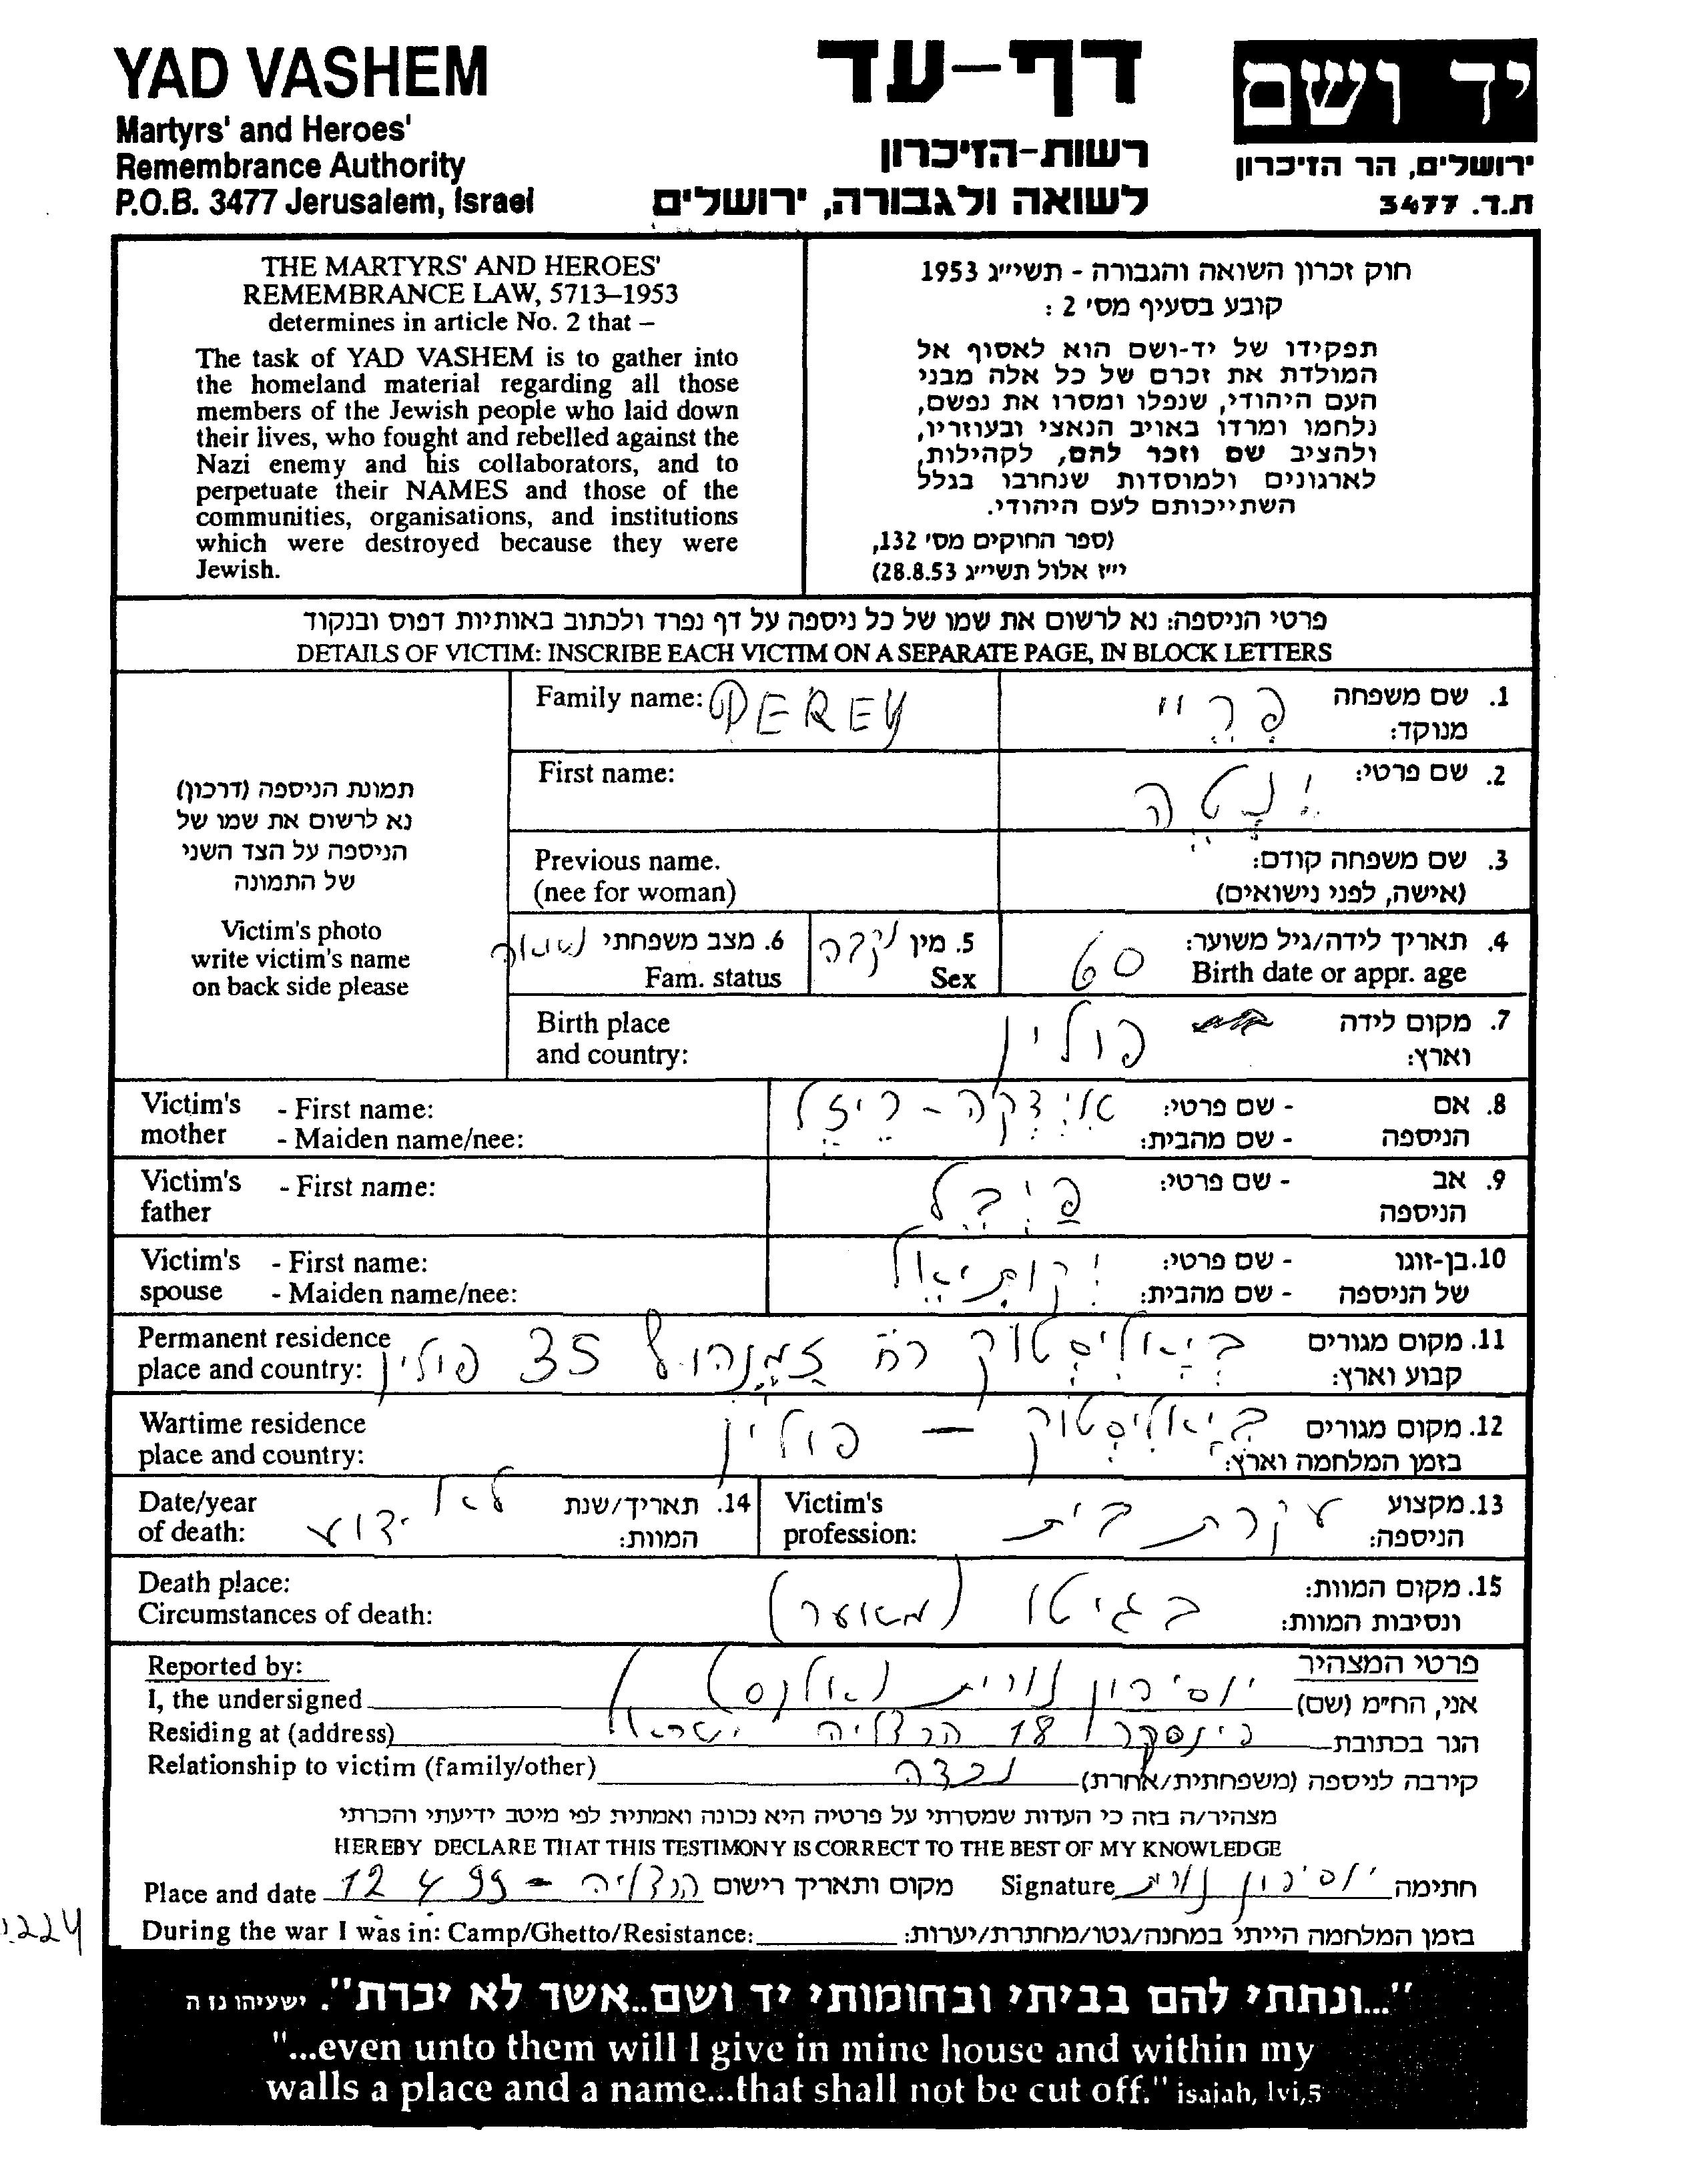 YAD VASHEM
Martyrs' and Heroes'
Remembrance Authority
P.O.B. 3477 Jerusalem, Israel
דף-עד
רשות-הזיכרון
לשואה ולגבורה, ירושלים
יד ושם
ירושלים, הר הזיכרון
ת.ד. 3477
THE MARTYRS' AND HEROES'
REMEMBRANCE LAW, 5713–1953
determines in article No. 2 that –
The task of YAD VASHEM is to gather into
the homeland material regarding all those
members of the Jewish people who laid down
their lives, who fought and rebelled against the
Nazi enemy and his collaborators, and to
perpetuate their NAMES and those of the
communities, organisations, and institutions
which were destroyed because they were
Jewish.
חוק זכרון השואה והגבורה - תשי״ג 1953
קובע בסעיף מס' 2 :
תפקידו של יד-ושם הוא לאסוף אל
המולדת את זכרם של כל אלה מבני
העם היהודי, שנפלו ומסרו את נפשם,
נלחמו ומרדו באויב הנאצי ובעוזריו,
ולהציב שם וזכר להם, לקהילות,
לארגונים ולמוסדות שנחרבו בגלל
השתייכותם לעם היהודי.
(ספר החוקים מס' 132,
י״ז אלול תשי״ג 28.8.53)
פרטי הניספה: נא לרשום את שמו של כל ניספה על דף נפרד ולכתוב באותיות דפוס ובנקוד
DETAILS OF VICTIM: INSCRIBE EACH VICTIM ON A SEPARATE PAGE, IN BLOCK LETTERS
תמונת הניספה (דרכון)
נא לרשום את שמו של
הניספה על הצד השני
של התמונה
Victim's photo
write victim's name
on back side please
Family name: PEREY
1. שם משפחה
מנוקד: פריי
First name:
2. שם פרטי: ינטה
Previous name.
(nee for woman)
3. שם משפחה קודם:
(אישה, לפני נישואים)
4. תאריך לידה/גיל משוער: 60
Birth date or appr. age
5. מין נקבה
Sex
6. מצב משפחתי נשואה
Fam. status
Birth place
and country:
7. מקום לידה
וארץ: פולין
Victim's mother
- First name:
- Maiden name/nee:
8. אם הניספה
- שם פרטי:
- שם מהבית:
Victim's father
- First name:
9. אב הניספה
- שם פרטי: פיבל
Victim's spouse
- First name:
- Maiden name/nee:
10. בן-זוגו של הניספה
- שם פרטי: יקותיאל
- שם מהבית:
Permanent residence
place and country:
11. מקום מגורים
קבוע וארץ: ביאליסטוק רח' זמנהוף 35 פולין
Wartime residence
place and country:
12. מקום מגורים
בזמן המלחמה וארץ: ביאליסטוק – פולין
Victim's
profession:
13. מקצוע
הניספה: עקרת בית
Date/year
of death:
14. תאריך/שנת
המוות: לא ידוע
Death place:
Circumstances of death:
15. מקום המוות:
ונסיבות המוות: בגיטו (משוער)
Reported by:
פרטי המצהיר
I, the undersigned
אני, הח״מ (שם) יוסיפון נורית
Residing at (address)
הגר בכתובת פינסקר 18 הרצליה ישראל
Relationship to victim (family/other)
קירבה לניספה (משפחתית/אחרת) נכדה
מצהיר/ה בזה כי העדות שמסרתי על פרטיה היא נכונה ואמתית לפי מיטב ידיעתי והכרתי
HEREBY DECLARE THAT THIS TESTIMONY IS CORRECT TO THE BEST OF MY KNOWLEDGE
Place and date 12 4 99 – הרצליה מקום ותאריך רישום
Signature יוסיפון נורית חתימה
During the war I was in: Camp/Ghetto/Resistance:
בזמן המלחמה הייתי במחנה/גטו/מחתרת/יערות:
"...ונתתי להם בביתי ובחומותי יד ושם..אשר לא יכרת". ישעיהו נו ה
"...even unto them will I give in mine house and within my
walls a place and a name...that shall not be cut off." isaiah, lvi,5